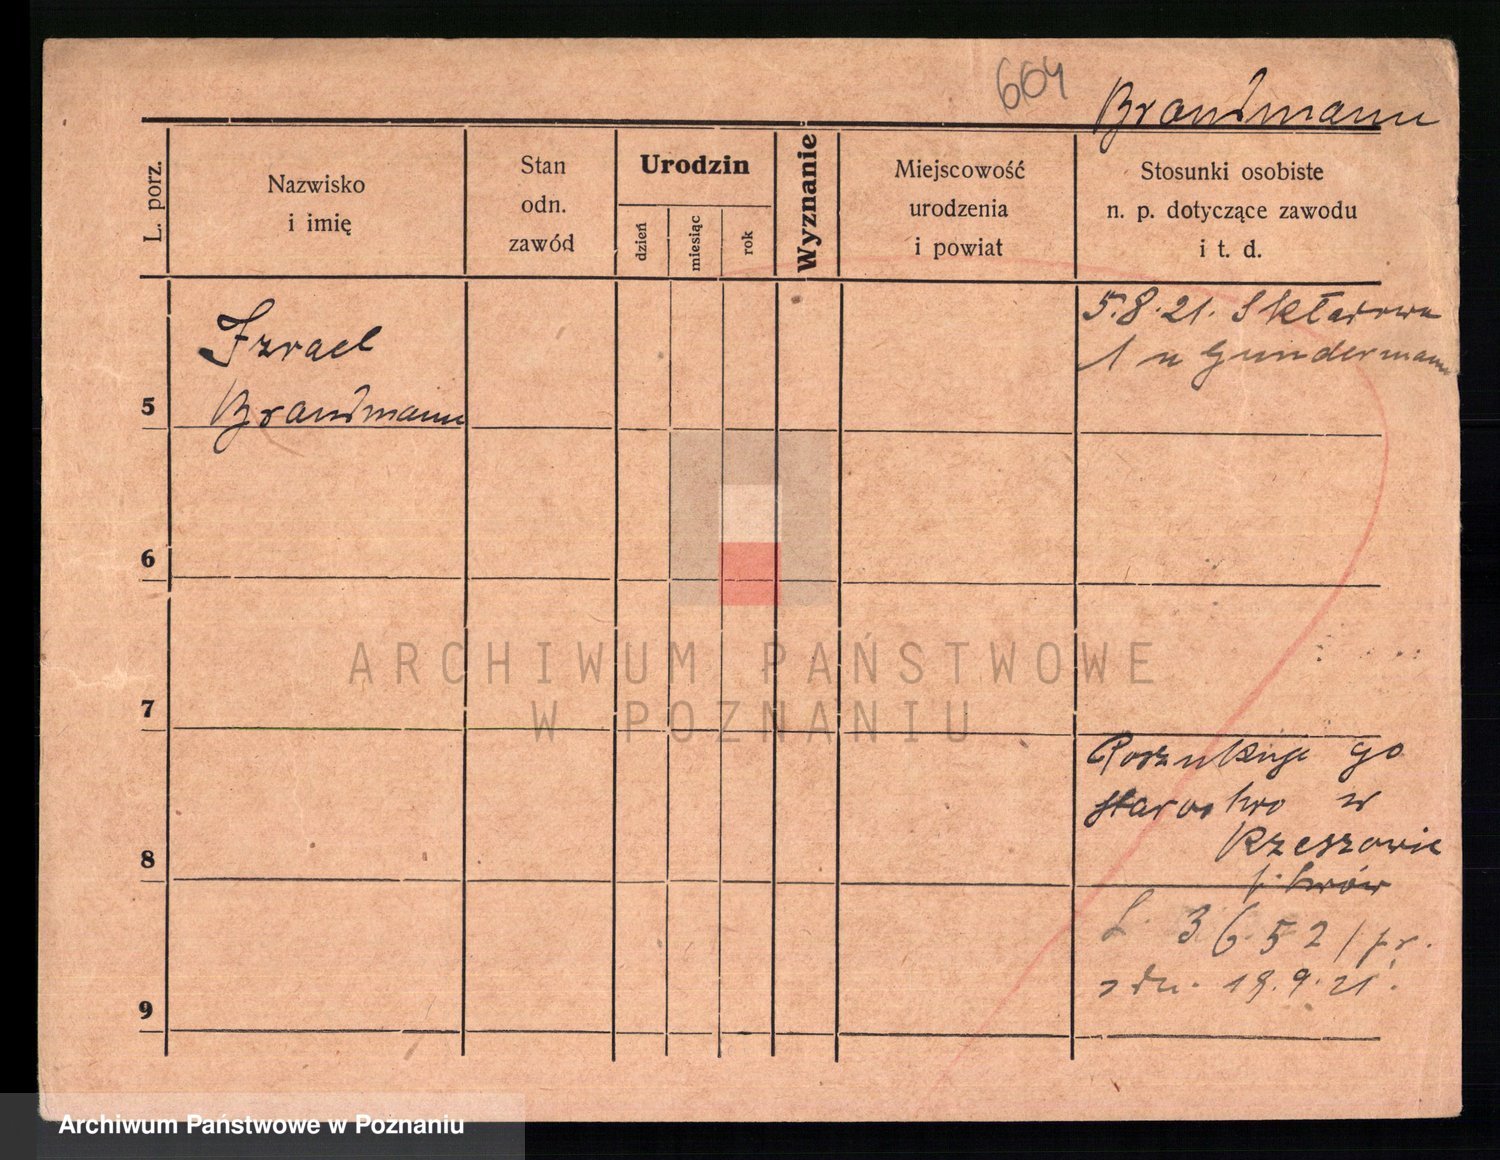 664
Brandmann
L. porz.
Nazwisko
i imię
Stan
odn.
zawód
Urodzin
dzień
miesiąc
rok
Wyznanie
Miejscowość
urodzenia
i powiat
Stosunki osobiste
n. p. dotyczące zawodu
i t. d.
5.8.21. Składowa
1 u Gundermann
Izrael
Brandmann
5
6
7
8
9
Poszukuje go
starostwo w
Rzeszowie
Lwów
L. 3652/pr.
z dn. 19.9.21.
ARCHIWUM PAŃSTWOWE
W POZNANIU
Archiwum Państwowe w Poznaniu